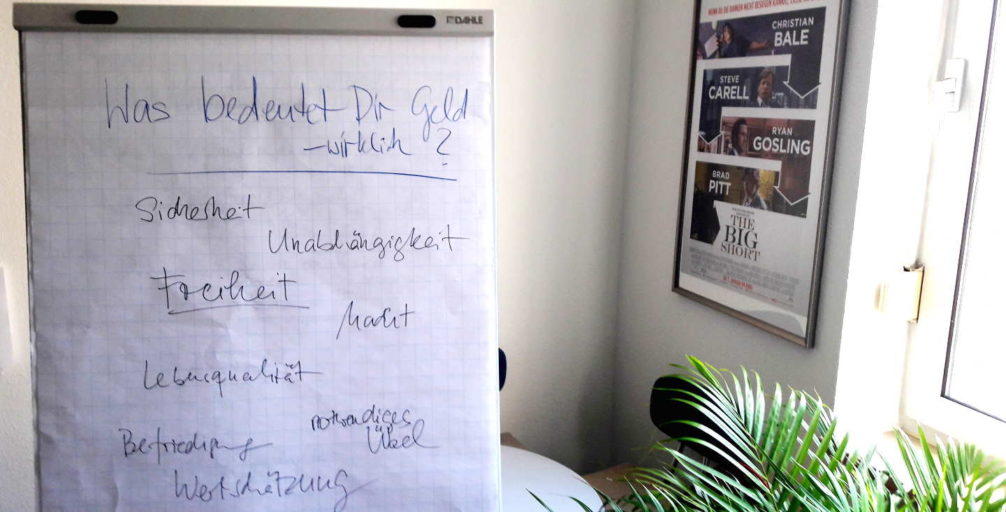 DAHLE
Was bedeutet Dir Geld
-wirklich ?
Sicherheit
Unabhängigkeit
Freiheit
Macht
Lebensqualität
notwendiges
Übel
Befriedigung
Wertschätzung
CHRISTIAN
BALE
STEVE
CARELL
RYAN
GOSLING
BRAD
PITT
THE
BIG
SHORT